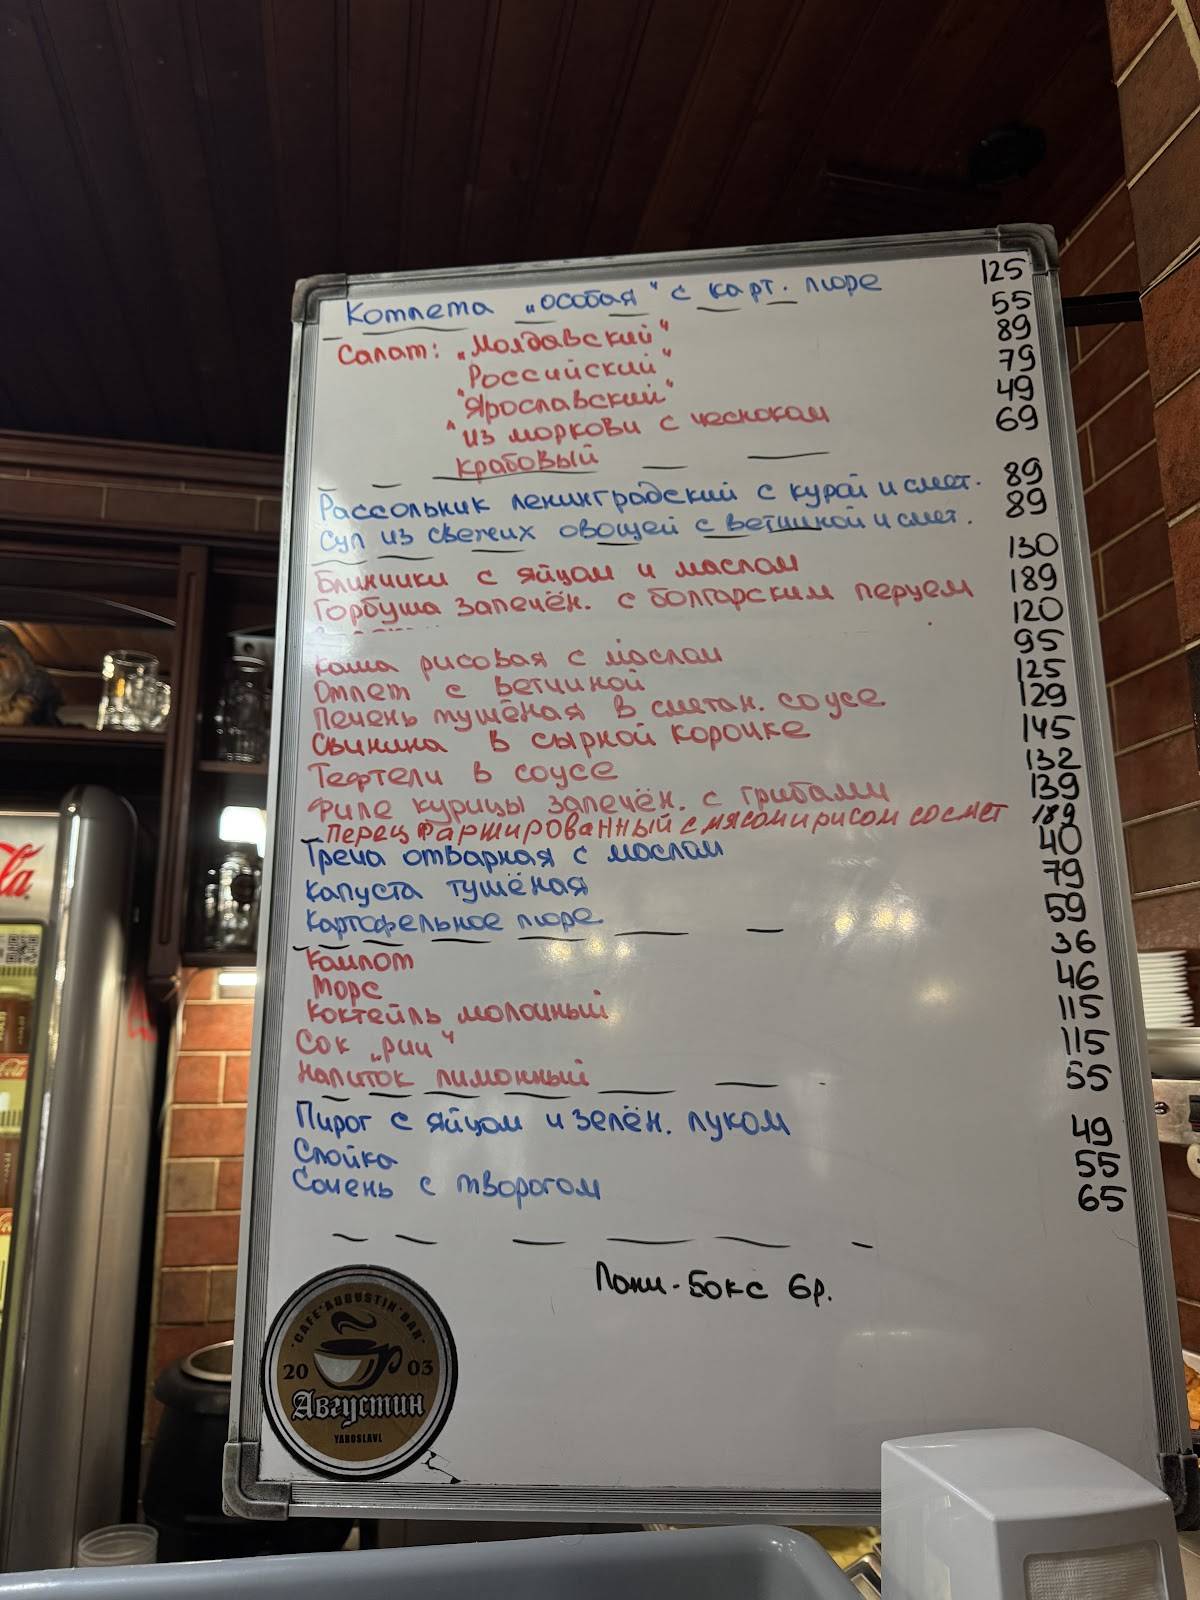 Котлета „особая" с карт. пюре 125
Салат: „Молдавский" 55
"Российский" 89
"Ярославский" 79
"из моркови с чесноком 49
крабовый 69
Рассольник ленинградский с курой и смет. 89
Суп из свежих овощей с ветчиной и смет. 89
Блинчики с яйцом и маслом 130
Горбуша запечён. с болгарским перцем 189
120
Каша рисовая с маслом 95
Омлет с ветчиной 125
Печень тушёная в сметан. соусе 129
Свинина в сырной корочке 145
Тефтели в соусе 132
Филе курицы запечён. с грибами 139
Перец фаршированный с мясом и рисом со смет 189
Греча отварная с маслом 40
Капуста тушёная 79
Картофельное пюре 59
Компот 36
Морс 46
Коктейль молочный 115
Сок „рич" 115
Напиток лимонный 55
Пирог с яйцом и зелён. луком 49
Слойка 55
Сочень с творогом 65
Ланч-Бокс 6р.
CAFE·AUGUSTIN·BAR
20 03
Августин
YAROSLAVL
la
Coca-Cola